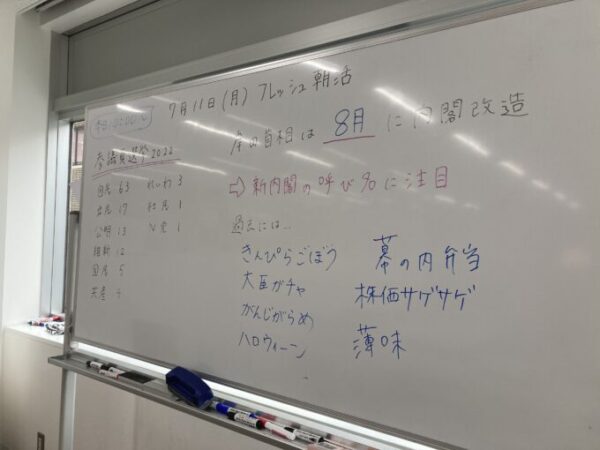 7月11日(月) フレッシュ朝活
本日10:00〜
参議員選挙2022
自民 63 れいわ 3
立民 17 社民 1
公明 13 N党 1
維新 12
国民 5
共産 4
岸田首相は 8月 に内閣改造
⇨ 新内閣の呼び名に注目
過去には..
きんぴらごぼう 幕の内弁当
大臣ガチャ 株価サゲサゲ
がんじがらめ
ハロウィーン 薄味